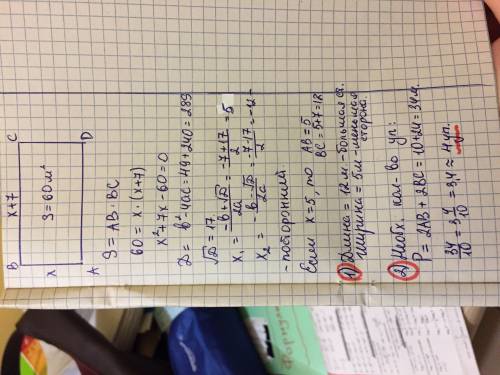 B x+7 C
x S=60м²
A D
S = AB · BC
60 = x · (x+7)
x² + 7x - 60 = 0
D = b² - 4ac = 49 + 240 = 289
√D = 17
x₁ = (-b + √D)/2a = (-7+17)/2 = 5
x₂ = (-b - √D)/2a = (-7-17)/2 = -12 -
- посторонний
Если x = 5, то AB = 5
BC = 5+7 = 12
1) Длина = 12м - большая ст.
ширина = 5м - меньшая
сторона.
2) Необх. кол-во уп:
P = 2AB + 2BC = 10 + 24 = 34м.
34/10 = 3 4/10 = 3,4 ≈ 4 уп.